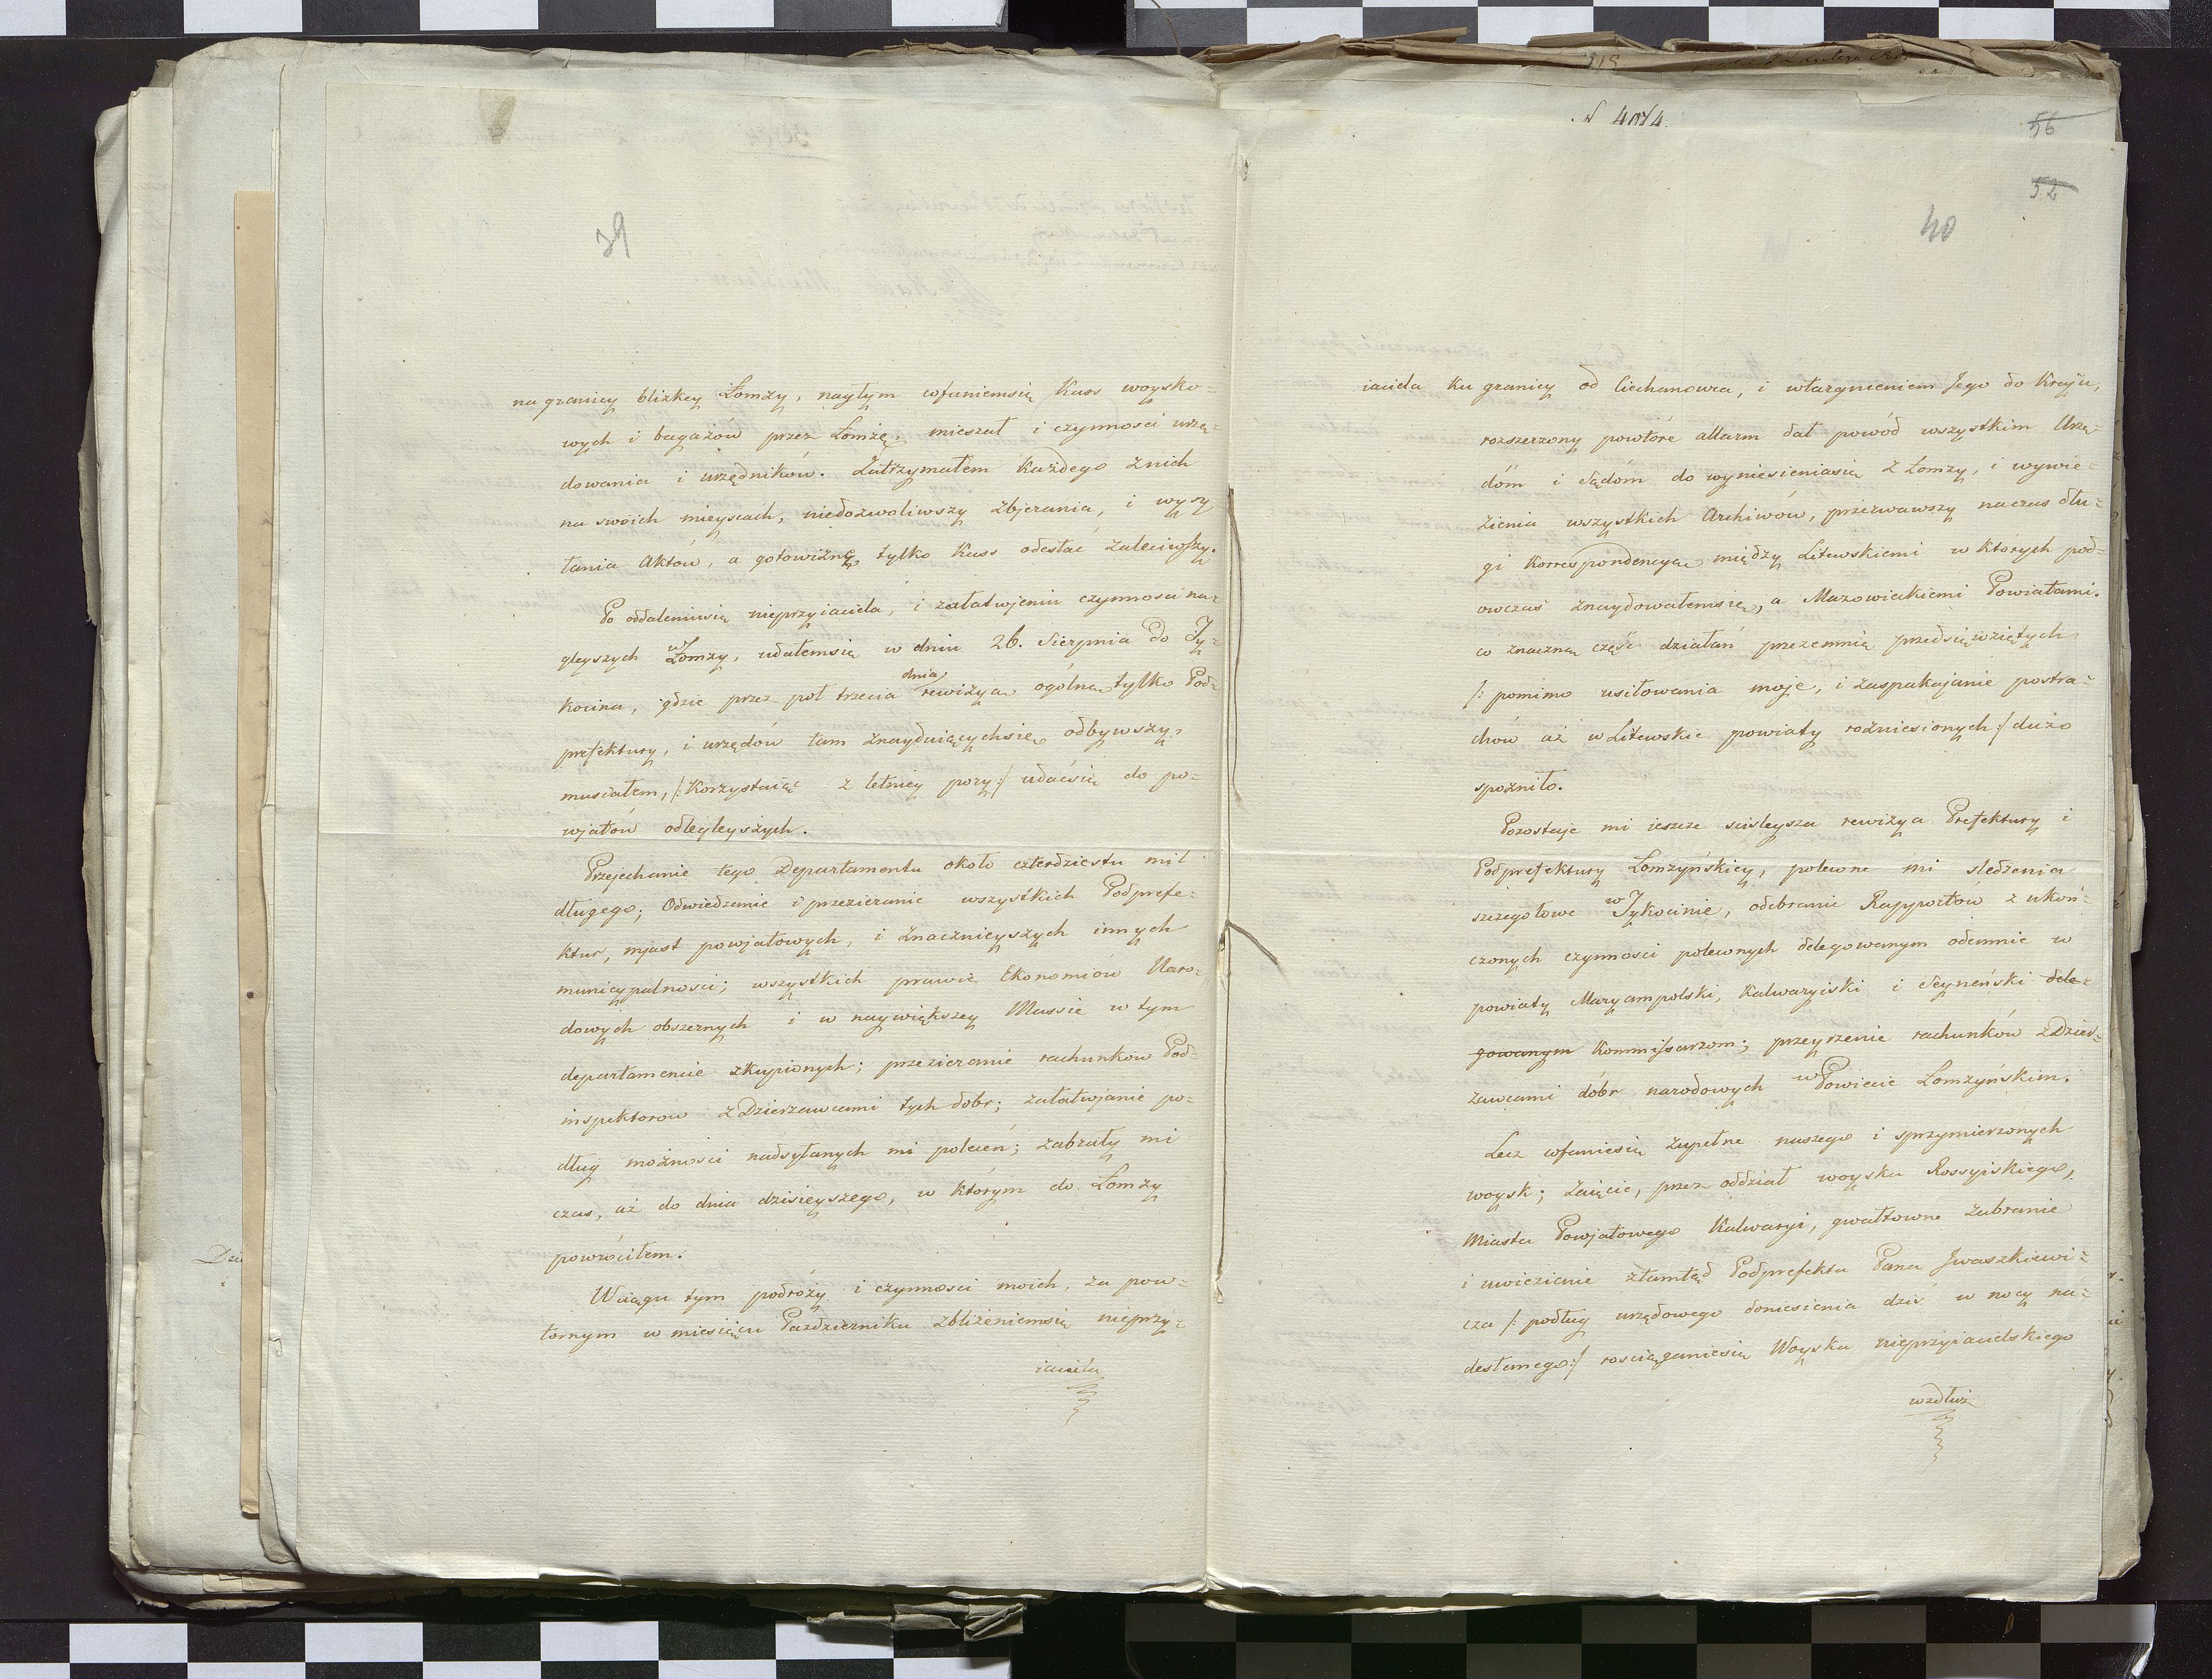 39
na granicy blizkey Łomży, nagłym cofaniemsię Kass woysko=
wych i bagażów przez Łomżę, mieszał i czynności urzę=
dowania i urzędników. Zatrzymałem Każdego znich
na swoich mieyscach, niedozwoliwszy zbjerania, i wysy
łania Aktów, a gotowiznę tylko Kass odesłać zaleciwszy.
Po oddaleniusię nieprzyiaciela, i załatwjeniu czynności na=
gleyszych w Łomży, udałemsię w dniu 26. Sierpnia do Ty=
kocina, gdzie przez pół trzecia dnia rewizya ogólna tylko Pod=
prefektury, i urzędów tam znayduiącychsię odbywszy,
musiałem, /:Korzystaiąc z letniey pory:/ udaćsię do po=
wjatów odlegleyszych.
Przejechanie tego Departamentu około czterdziestu mil
długego; Odwiedzenie i przezieranie wszystkich Podprefe=
ktur, mjast powjatowych, i znacznieyszych innych
municypalności; wszystkich prawie Ekonomiów Naro=
dowych obszernych i w naywiększey Massie w tym
departamencie skupionych; przezieranie rachunkow Pod=
inspektorow z Dzierzawcami tych dobr; załatwjanie po=
dług możności nadsyłanych mi poleceń; zabrały mi
czas, aż do dnia dzisieyszego, w którym do Łomży
powróciłem.
Wciągu tym podróży i czynności moich, za pow=
tornym w miesiącu Październiku zbliżeniemsię nieprzy=
iaciela
N 4074.
56
52
40
iaciela Ku granicy od Ciechanowca, i wtargnieniem Jego do Kraju,
rozszerzony powtóre allarm dał powód wszystkim Urzę=
dóm i Sądóm do wyniesieniasię z Łomży, i wywie=
zienia wszystkich Archiwów, przerwawszy na czas dłu=
gi Korrespondencya między Litewskiemi w których pod=
owczas znaydowałemsię, a Mazowieckiemi Powiatami.
co znaczną część działań przezemnię przedsięwziętych
/: pomimo usiłowania moje, i zaspakajanie postra=
chów aż w Litewskie powiaty rozniesionych:/ dużo
spoźniło.
Pozostaje mi ieszcze scisleysza rewizya Prefektury i
Podprefektury Łomzyńskiey, polecone mi sledzenia
szczegołowe w Tykocinie, odebranie Rapportów z ukoń=
czonych czynności poleconych delegowanym odemnie w
powiaty Maryampolski, Kalwaryiski i Seyneński dele=
gowanym Kommissarzom; przeyrzenie rachunków z Dzier=
zawcami dóbr narodowych w Powiecie Łomzyńskim.
Lecz cofaniesię zupełne naszego i sprzymierzonych
woysk; Zaięcie, przez oddział woyska Rossyiskiego,
Miasta Powjatowego Kalwaryi, gwałtowne zabranie
i uwiezienie ztamtąd Podprefekta Pana Jwaszkiewi=
cza /: podług urzędowego doniesienia dziś w nocy na=
desłanego:/ rosciąganiesię Woyska nieprzyiacielskiego
wzdłuż